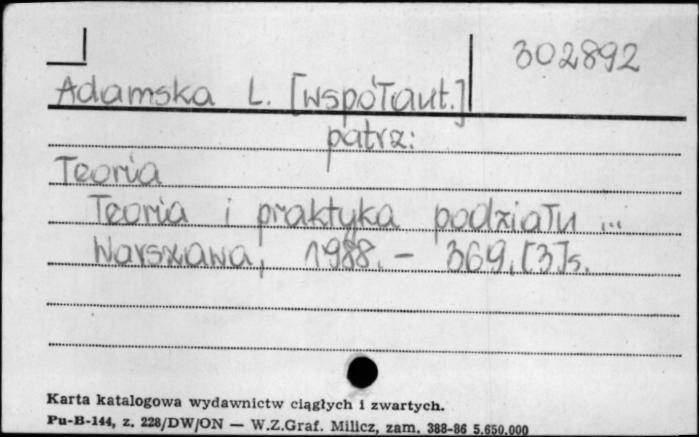 302892
Adamska L. [współaut.]
patrz:
Teoria
Teoria i praktyka podziału ...
Warszawa, 1988. - 369, [3] s.
Karta katalogowa wydawnictw ciągłych i zwartych.
Pu-B-144, z. 228/DW/ON — W.Z.Graf. Milicz, zam. 388-86 5.650.000